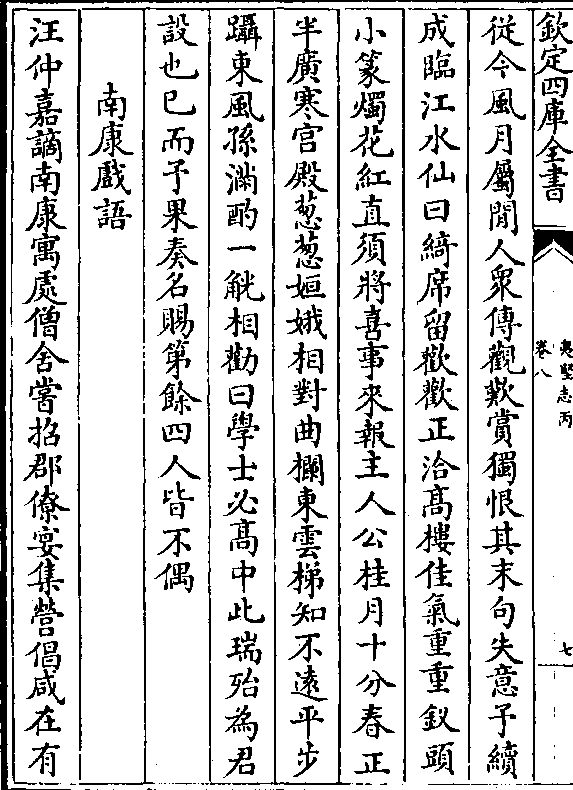 欽定四庫全書
夷堅志丙
卷八
七
從今風月屬閒人衆傳觀歎賞獨恨其末句失意予續
成臨江水仙曰綺席留歡歡正洽髙樓佳氣重重釵頭
小篆燭花紅直須將喜事來報主人公桂月十分春正
半廣寒宫殿葱葱姮娥相對曲欄東雲梯知不遠平步
躡東風孫滿酌一觥相勸曰學士必髙中此瑞殆為君
設也已而予果奏名賜第餘四人皆不偶
南康戲語
汪仲嘉謫南康寓處僧舍嘗招郡僚宴集營倡咸在有